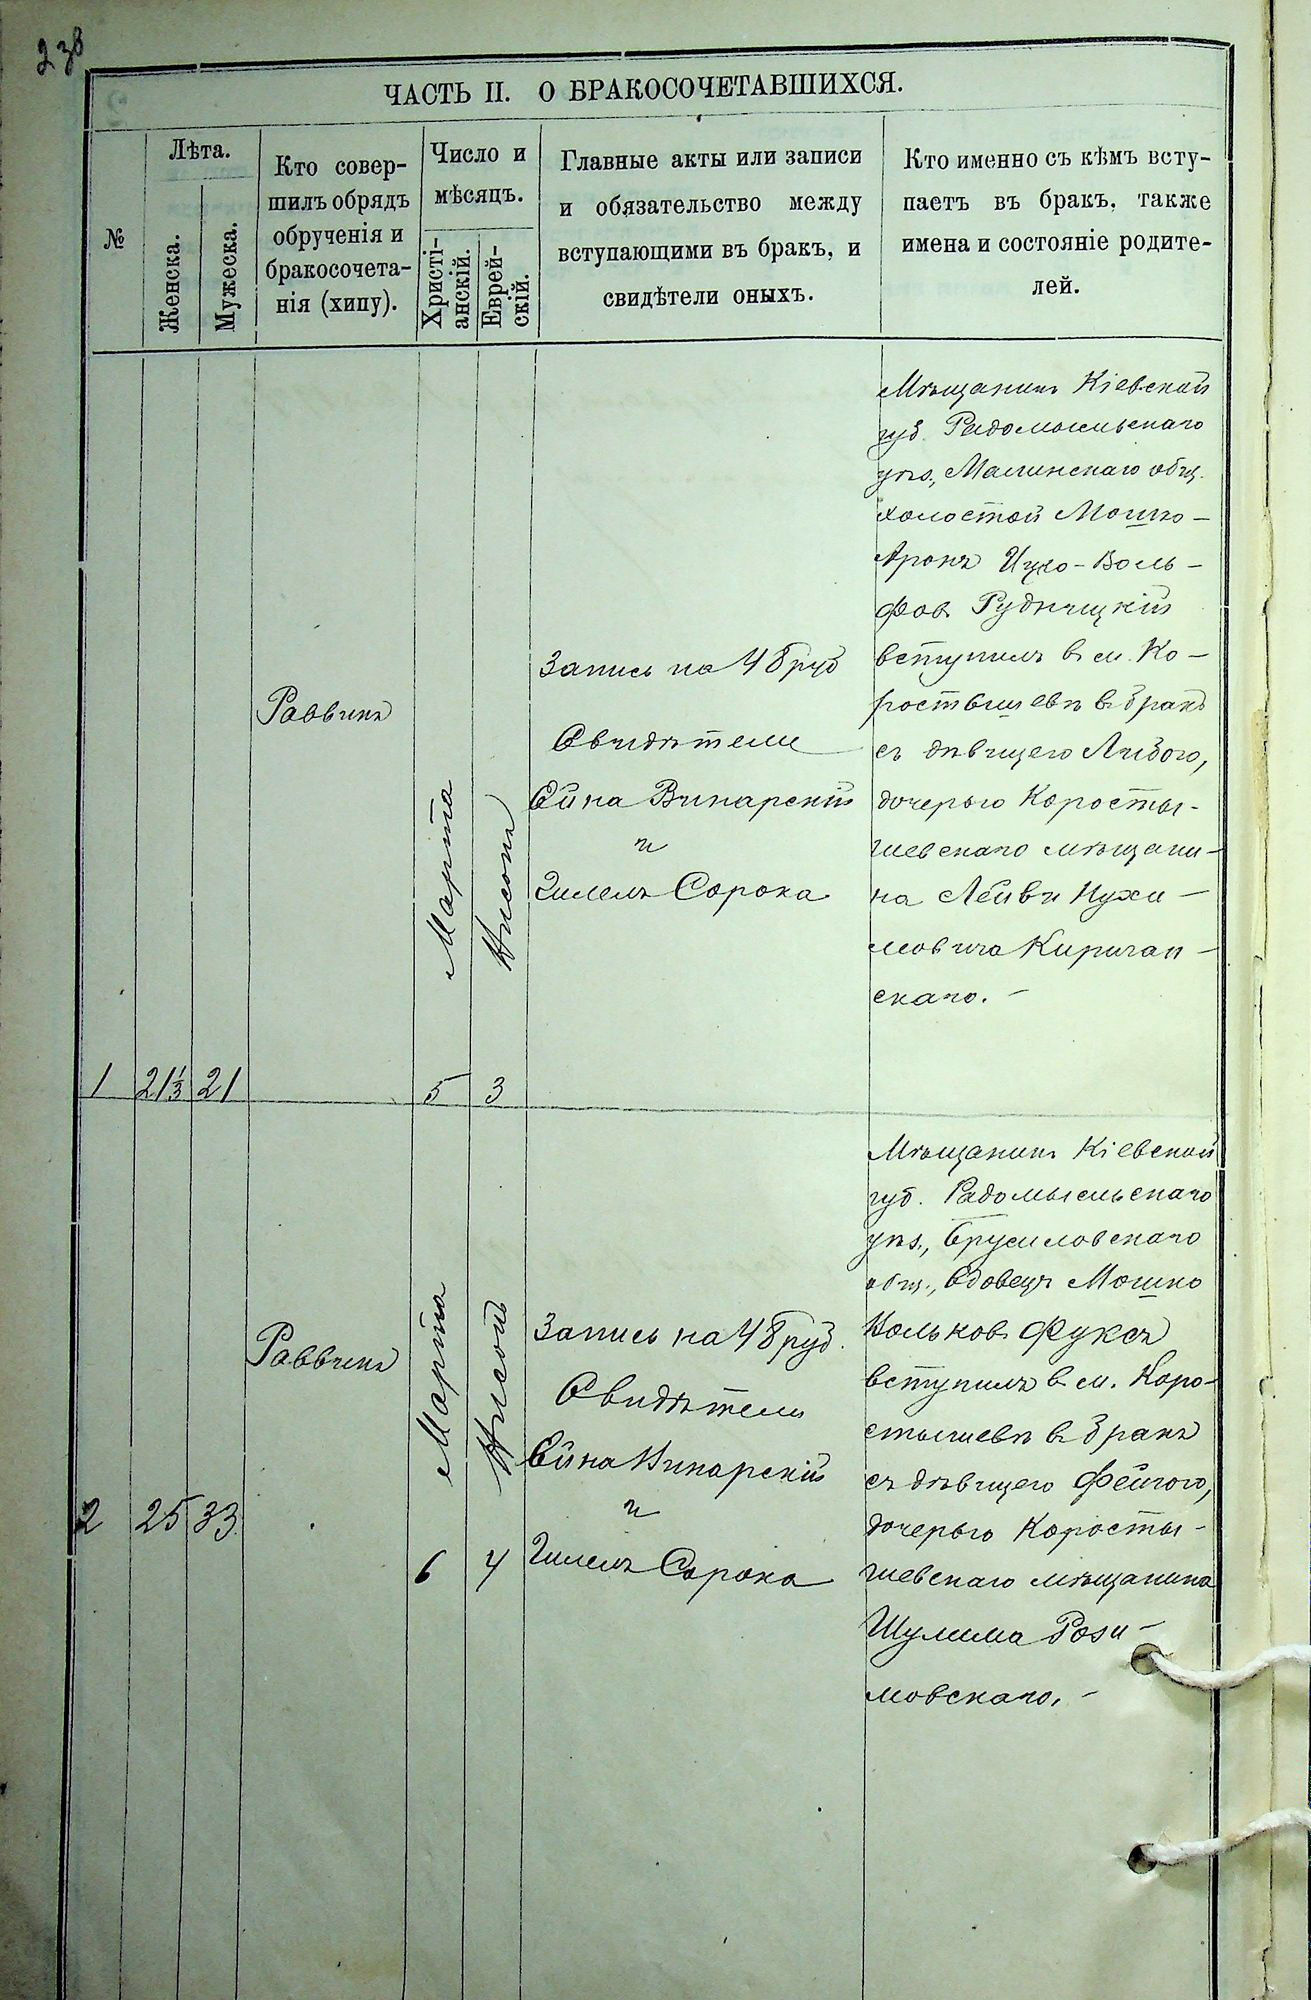 238
ЧАСТЬ II. О БРАКОСОЧЕТАВШИХСЯ.
№
Лѣта.
Женска.
Мужеска.
Кто совер-
шилъ обрядъ
обрученія и
бракосочета-
нія (хипу).
Число и
мѣсяцъ.
Христі-
анскій.
Еврей-
скій.
Главные акты или записи
и обязательство между
вступающими въ бракъ, и
свидѣтели оныхъ.
Кто именно съ кѣмъ всту-
паетъ въ бракъ, также
имена и состояніе родите-
лей.
1
21⅓
21
Раввинъ
Марта
5
Нисонъ
3
Запись на 48 руб
Свидѣтели
Ейна Винарскій
и
Гилелъ Сорока
Мѣщанинъ Кіевской
губ. Радомысльскаго
уѣз., Малинскаго общ.
холостой Мошко-
Аронъ Ицко-Воль-
фовъ Рудницкій
вступилъ въ м. Ко-
ростышевѣ въ бракъ
съ дѣвицею Либою,
дочерью Коросты-
шевскаго мѣщани-
на Лейви Нухи-
мовича Киричан-
скаго.-
2
25
33
Раввинъ
Марта
6
Нисонъ
4
Запись на 48 руб.
Свидѣтели
Ейна Винарскій
и
Гилелъ Сорока
Мѣщанинъ Кіевской
губ. Радомысльскаго
уѣз., Брусиловскаго
общ., вдовецъ Мошко
Волковъ Фуксъ
вступилъ въ м. Коро-
стышевѣ въ бракъ
съ дѣвицею Фейгою,
дочерью Коросты-
шевскаго мѣщанина
Шулима Рози-
мовскаго.-